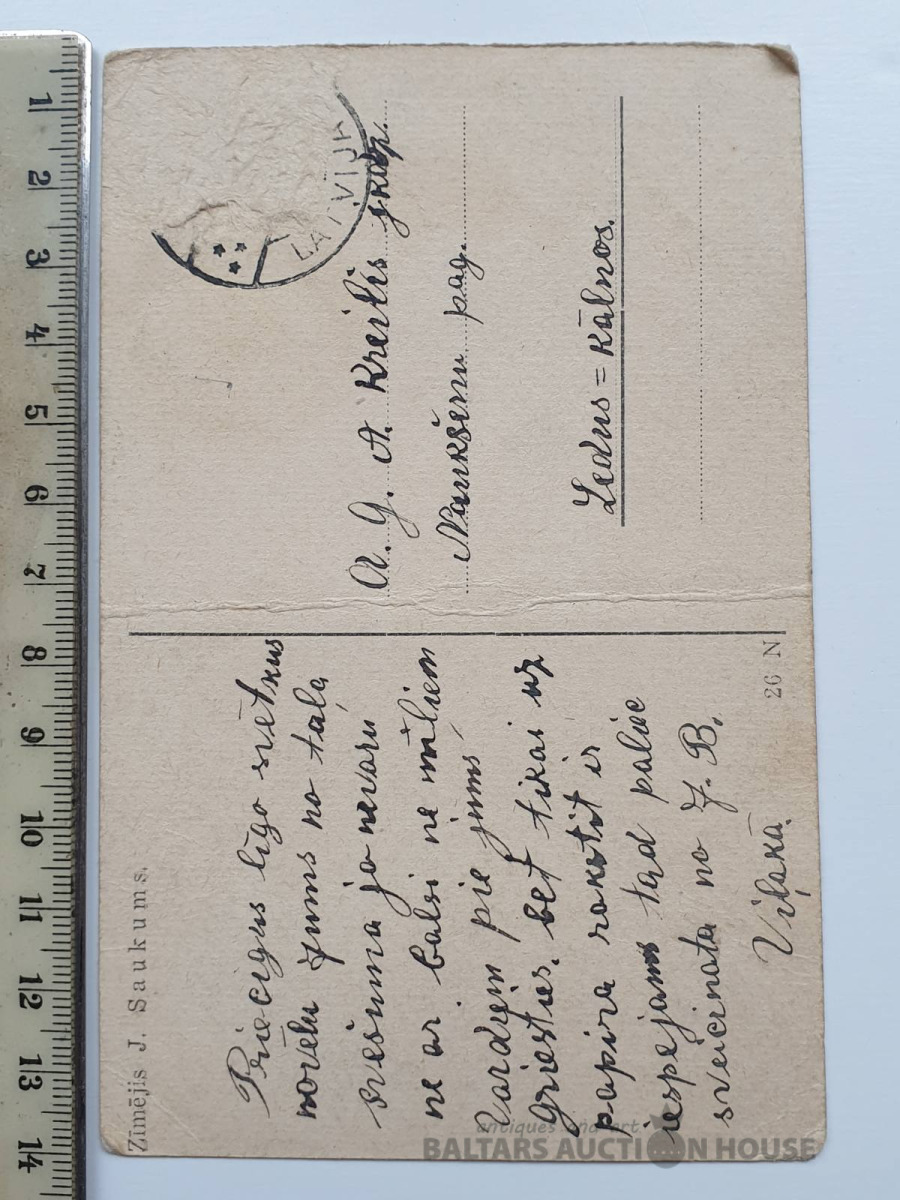 Zīmējis J. Saukums.
Priecigus līgo svētkus
novēlu Jums no taļa
svešuma ja nevaru
ne ar balsi ne mīļiem
vardiem pie jums
griesties. bet tikai uz
papira rakstit ir
iespejams tad paliec
sveicinata no J. B.
Viļakā
26 N
LATVIJA
A. G. A. Kreilis
Naukšēnu pag.
Ledus = Kalnos.
1 2 3 4 5 6 7 8 9 10 11 12 13 14
antiques and art
BALTARS AUCTION HOUSE